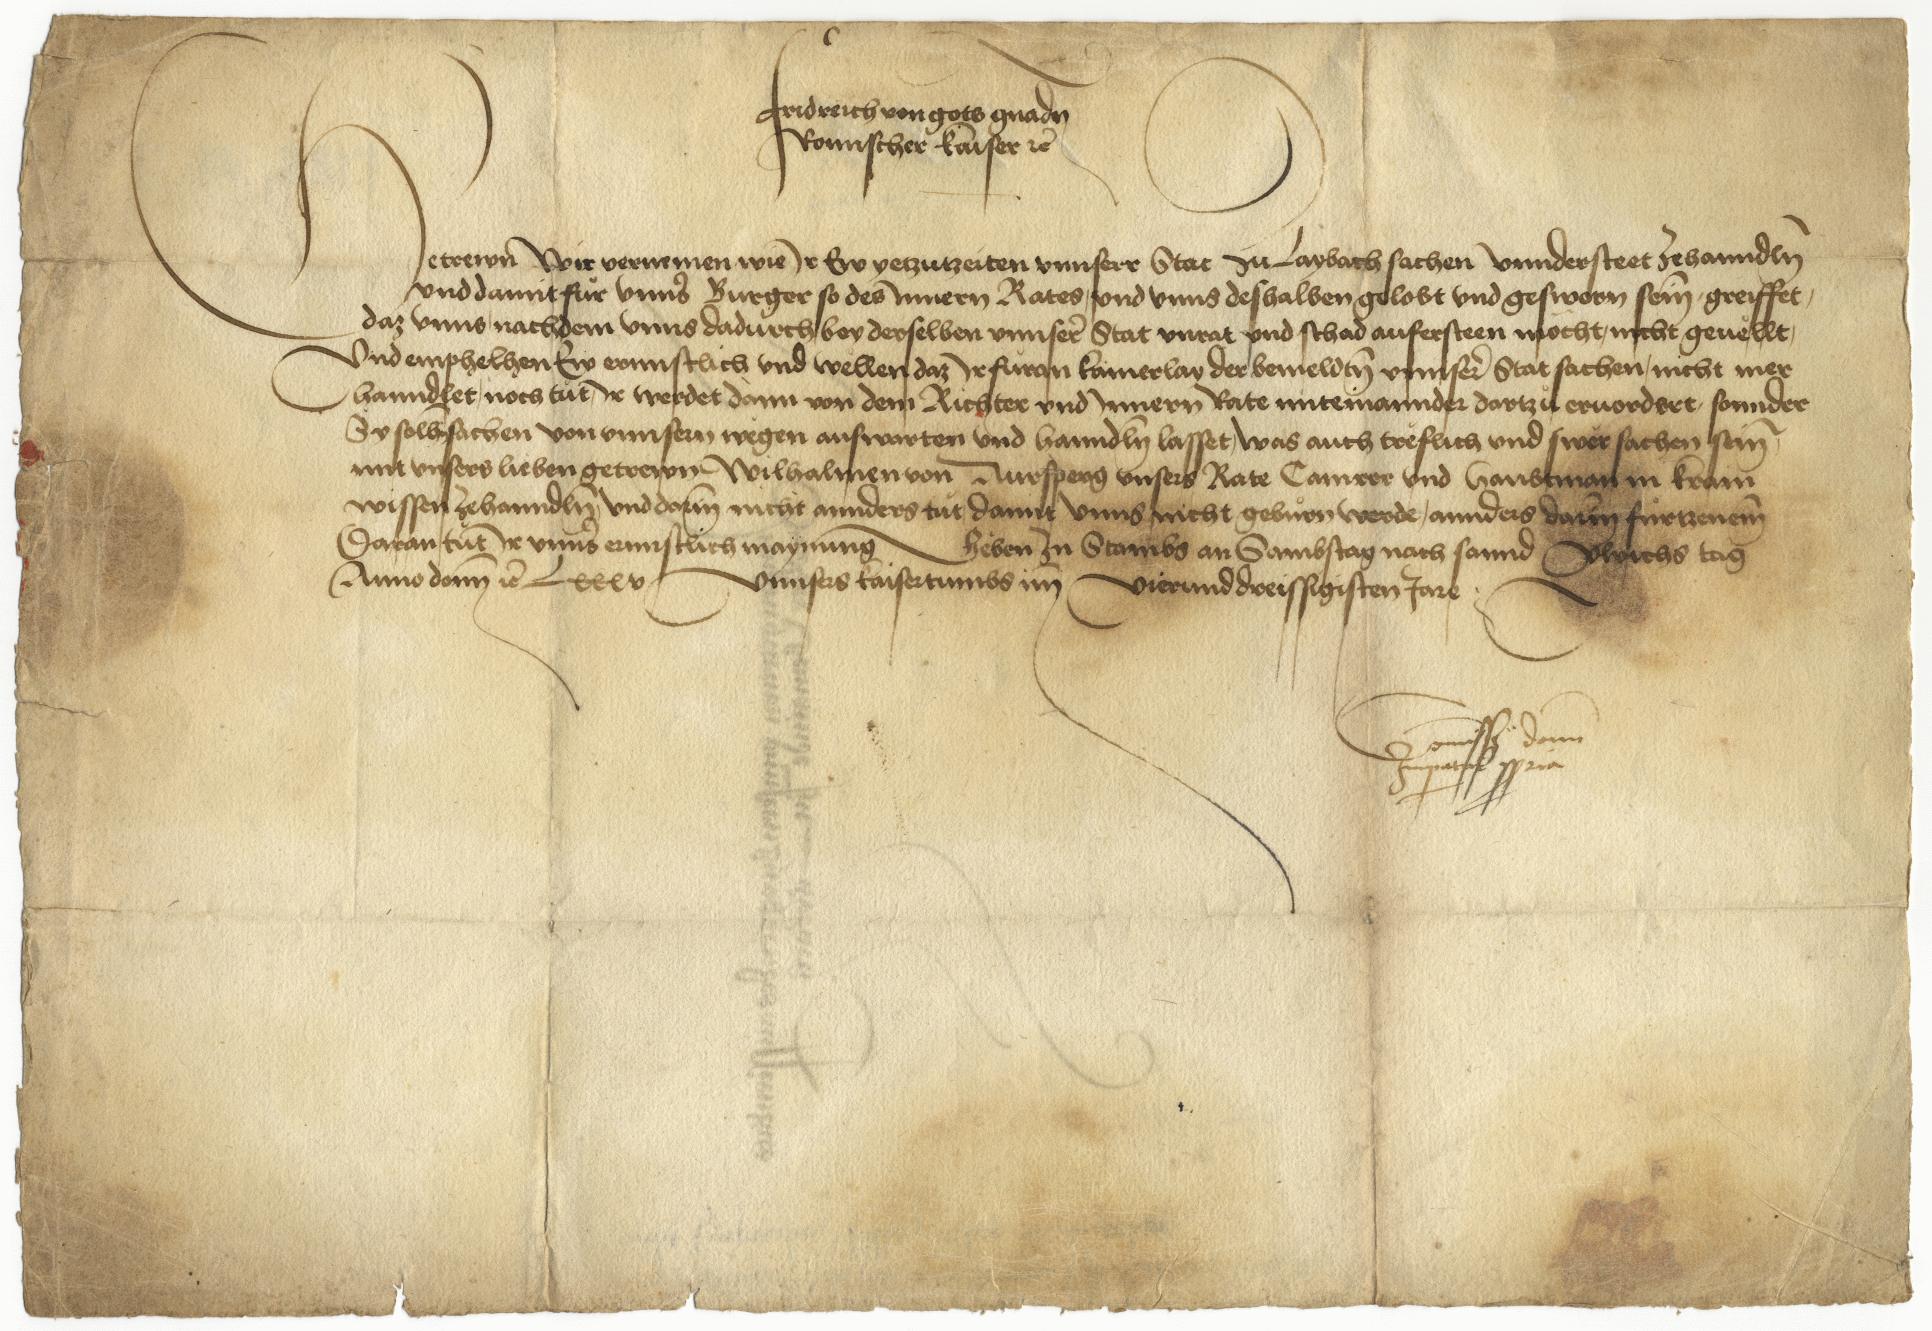 Fridreich von gots gnadn
Romischer kaiser ꝛc
Getrewn Wir vernemen wie Ir Ew yetzutzeiten vnnserr Stat zu Laybach sachen vnndersteet zehanndln
vnd damit für vnns Burger so des Innern Rates, vnd vnns deshalben gelobt vnd gesworn sein, greiffet,
daz vnns, nachdem vnns dadurch bey derselben vnnser Stat vnrat vnd schad aufersteen möcht, nicht geuellt,
Vnd emphelhen Ew ernnstlich vnd wellen daz Ir füran kainerlay der bemeldtn vnnser Stat sachen, nicht mer
hanndlet, noch tüt, Ir werdet dann von dem Richter vnd Innern Rate miteinannder dartzü eruordert, sonnder
Sy solh sachen von vnnsern wegen aufwarten vnd hanndln lasset, was auch treflich vnd swer sachen sein,
mit vnsers lieben getrewn Wilhalmen von Aursperg vnsers Rate Camrer vnd haubtman in Krain
wissen zehanndln, vnd darin nicht annders tüt, damit vnns nicht gebürn werde, annders darin fürtzenem
Daran tüt Ir vnns ernnstlich maynung Geben zu Stambs an Sambstag nach sannd Vlreichs tag
Anno domi ꝛc Lxxxv Vnnsers kaisertumbs im Vierunddreissigisten Jare
Comissio domi
Imperatoris ppria